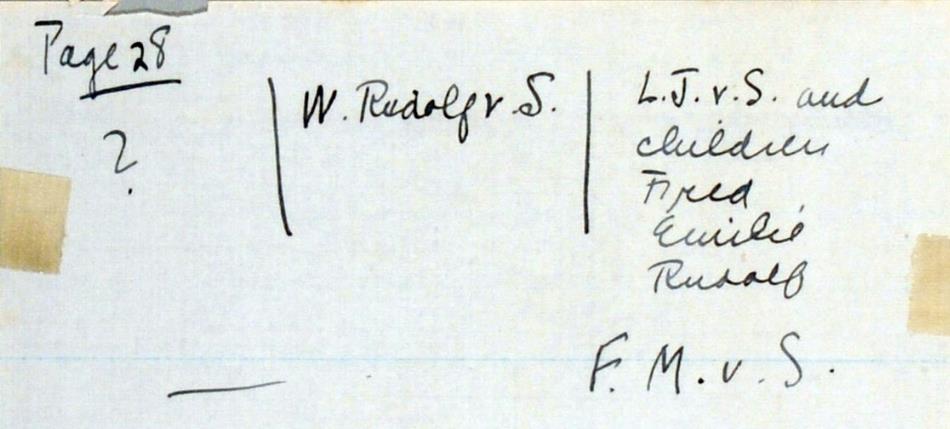 Page 28
?
W. Rudolf v S.
L.J. v. S. and
children
Fred
Emilie
Rudolf
F. M. v. S.